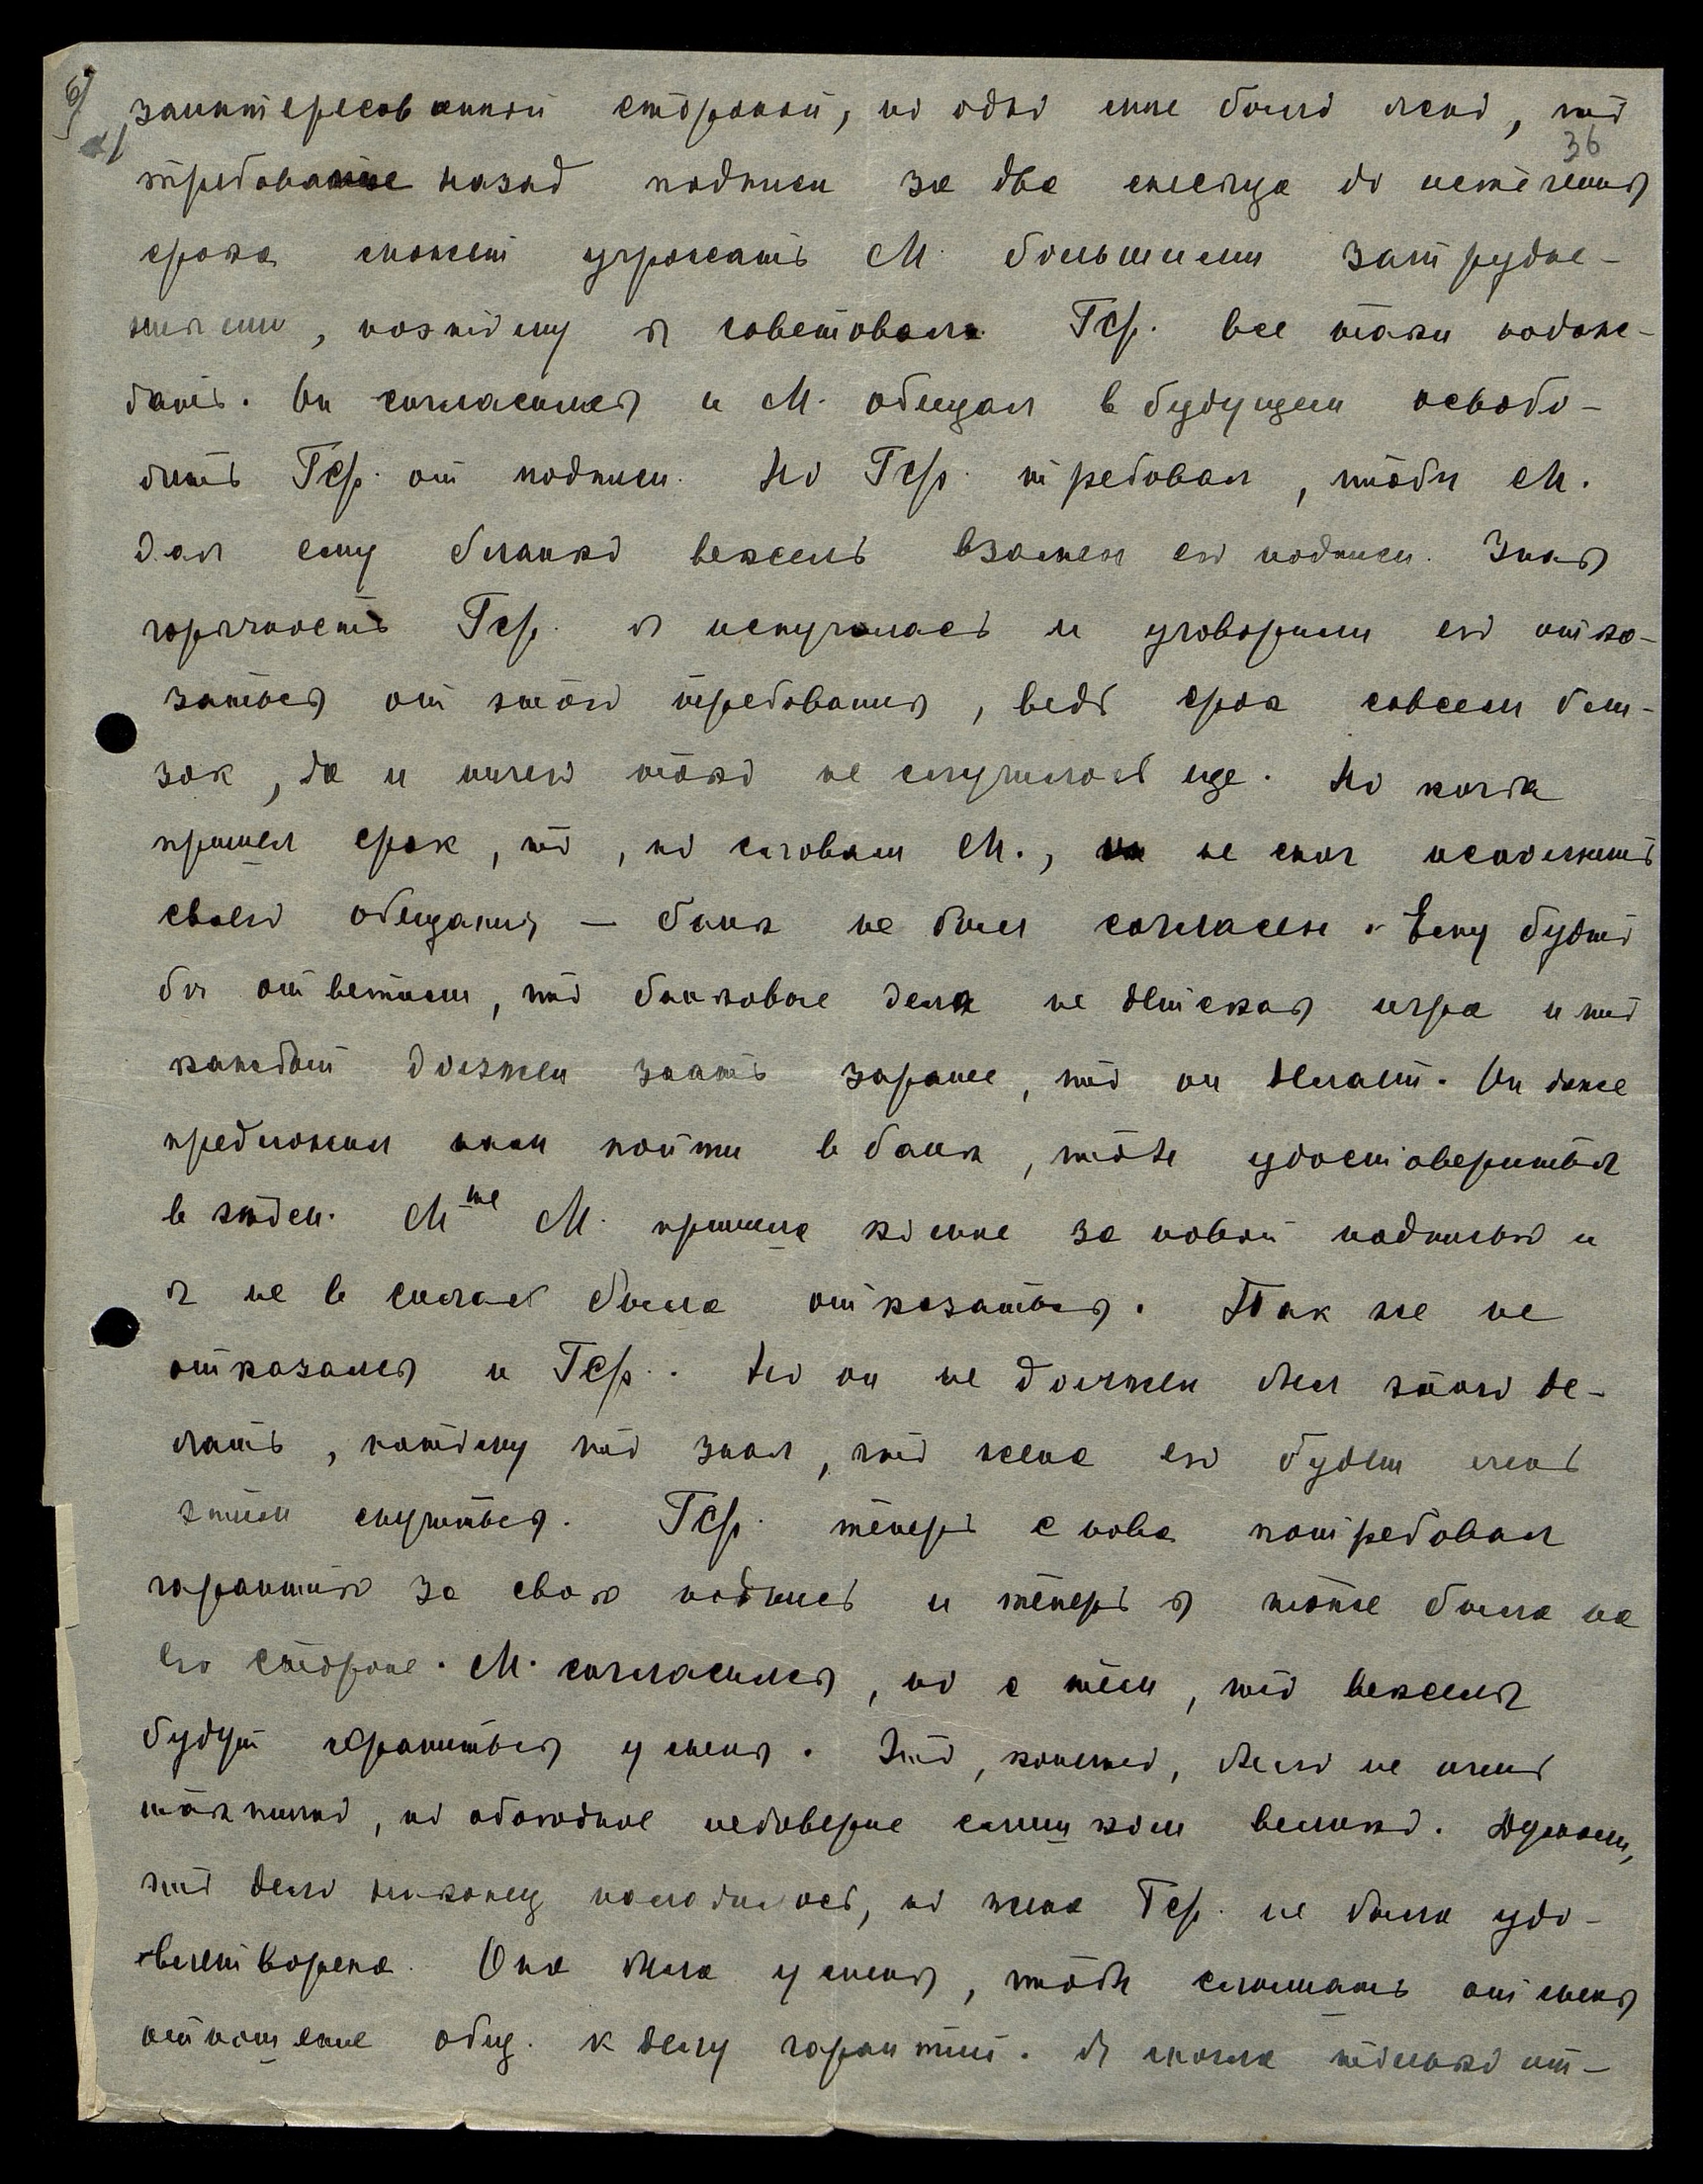 6)
36
заинтересованной стороной, но одно мне было ясно, что
требование назад подписи за два месяца до истечения
срока может угрожать М. большими затрудне-
ниями, поэтому я советовала Гср. все таки подож-
дать. Он согласился и М. обещал в будущем освобо-
дить Гср. от подписи. Но Гср. требовал, чтобы М.
дал ему бланко вексель взамен его подписи. Зная
горячность Гср. я испугалась и уговорили его отка-
заться от этого требования, ведь срок совсем бли-
зок, да и ничего такого не случилось еще. Но когда
пришел срок, то, по словам М., не смог исполнить
своего обещания — банк не был согласен. Ему будто
бы ответили, что банковое дело не детская игра и что
каждый должен знать заранее, что он делает. Он даже
предложил нам пойти в банк, чтобы удостовериться
в этом. Мme М. пришла ко мне за новой подписью и
я не в силах была отказаться. Так же не
отказался и Гср. Но он не должен был этого де-
лать, потому что знал, что жена его будет очень
этим смущаться. Гср. теперь снова потребовал
гарантию за свою подпись и теперь я тоже была на
его стороне. М. согласился, но с тем, что векселя
будут храниться у меня. Это, конечно, было не очень
тактично, но обоюдное недоверие слишком велико. Думали,
что дело наконец наладилось, но жена Гср. не была удо-
влетворена. Она была у меня, чтобы слышать от меня
отношение общ. к делу гарантии. Я могла только от-